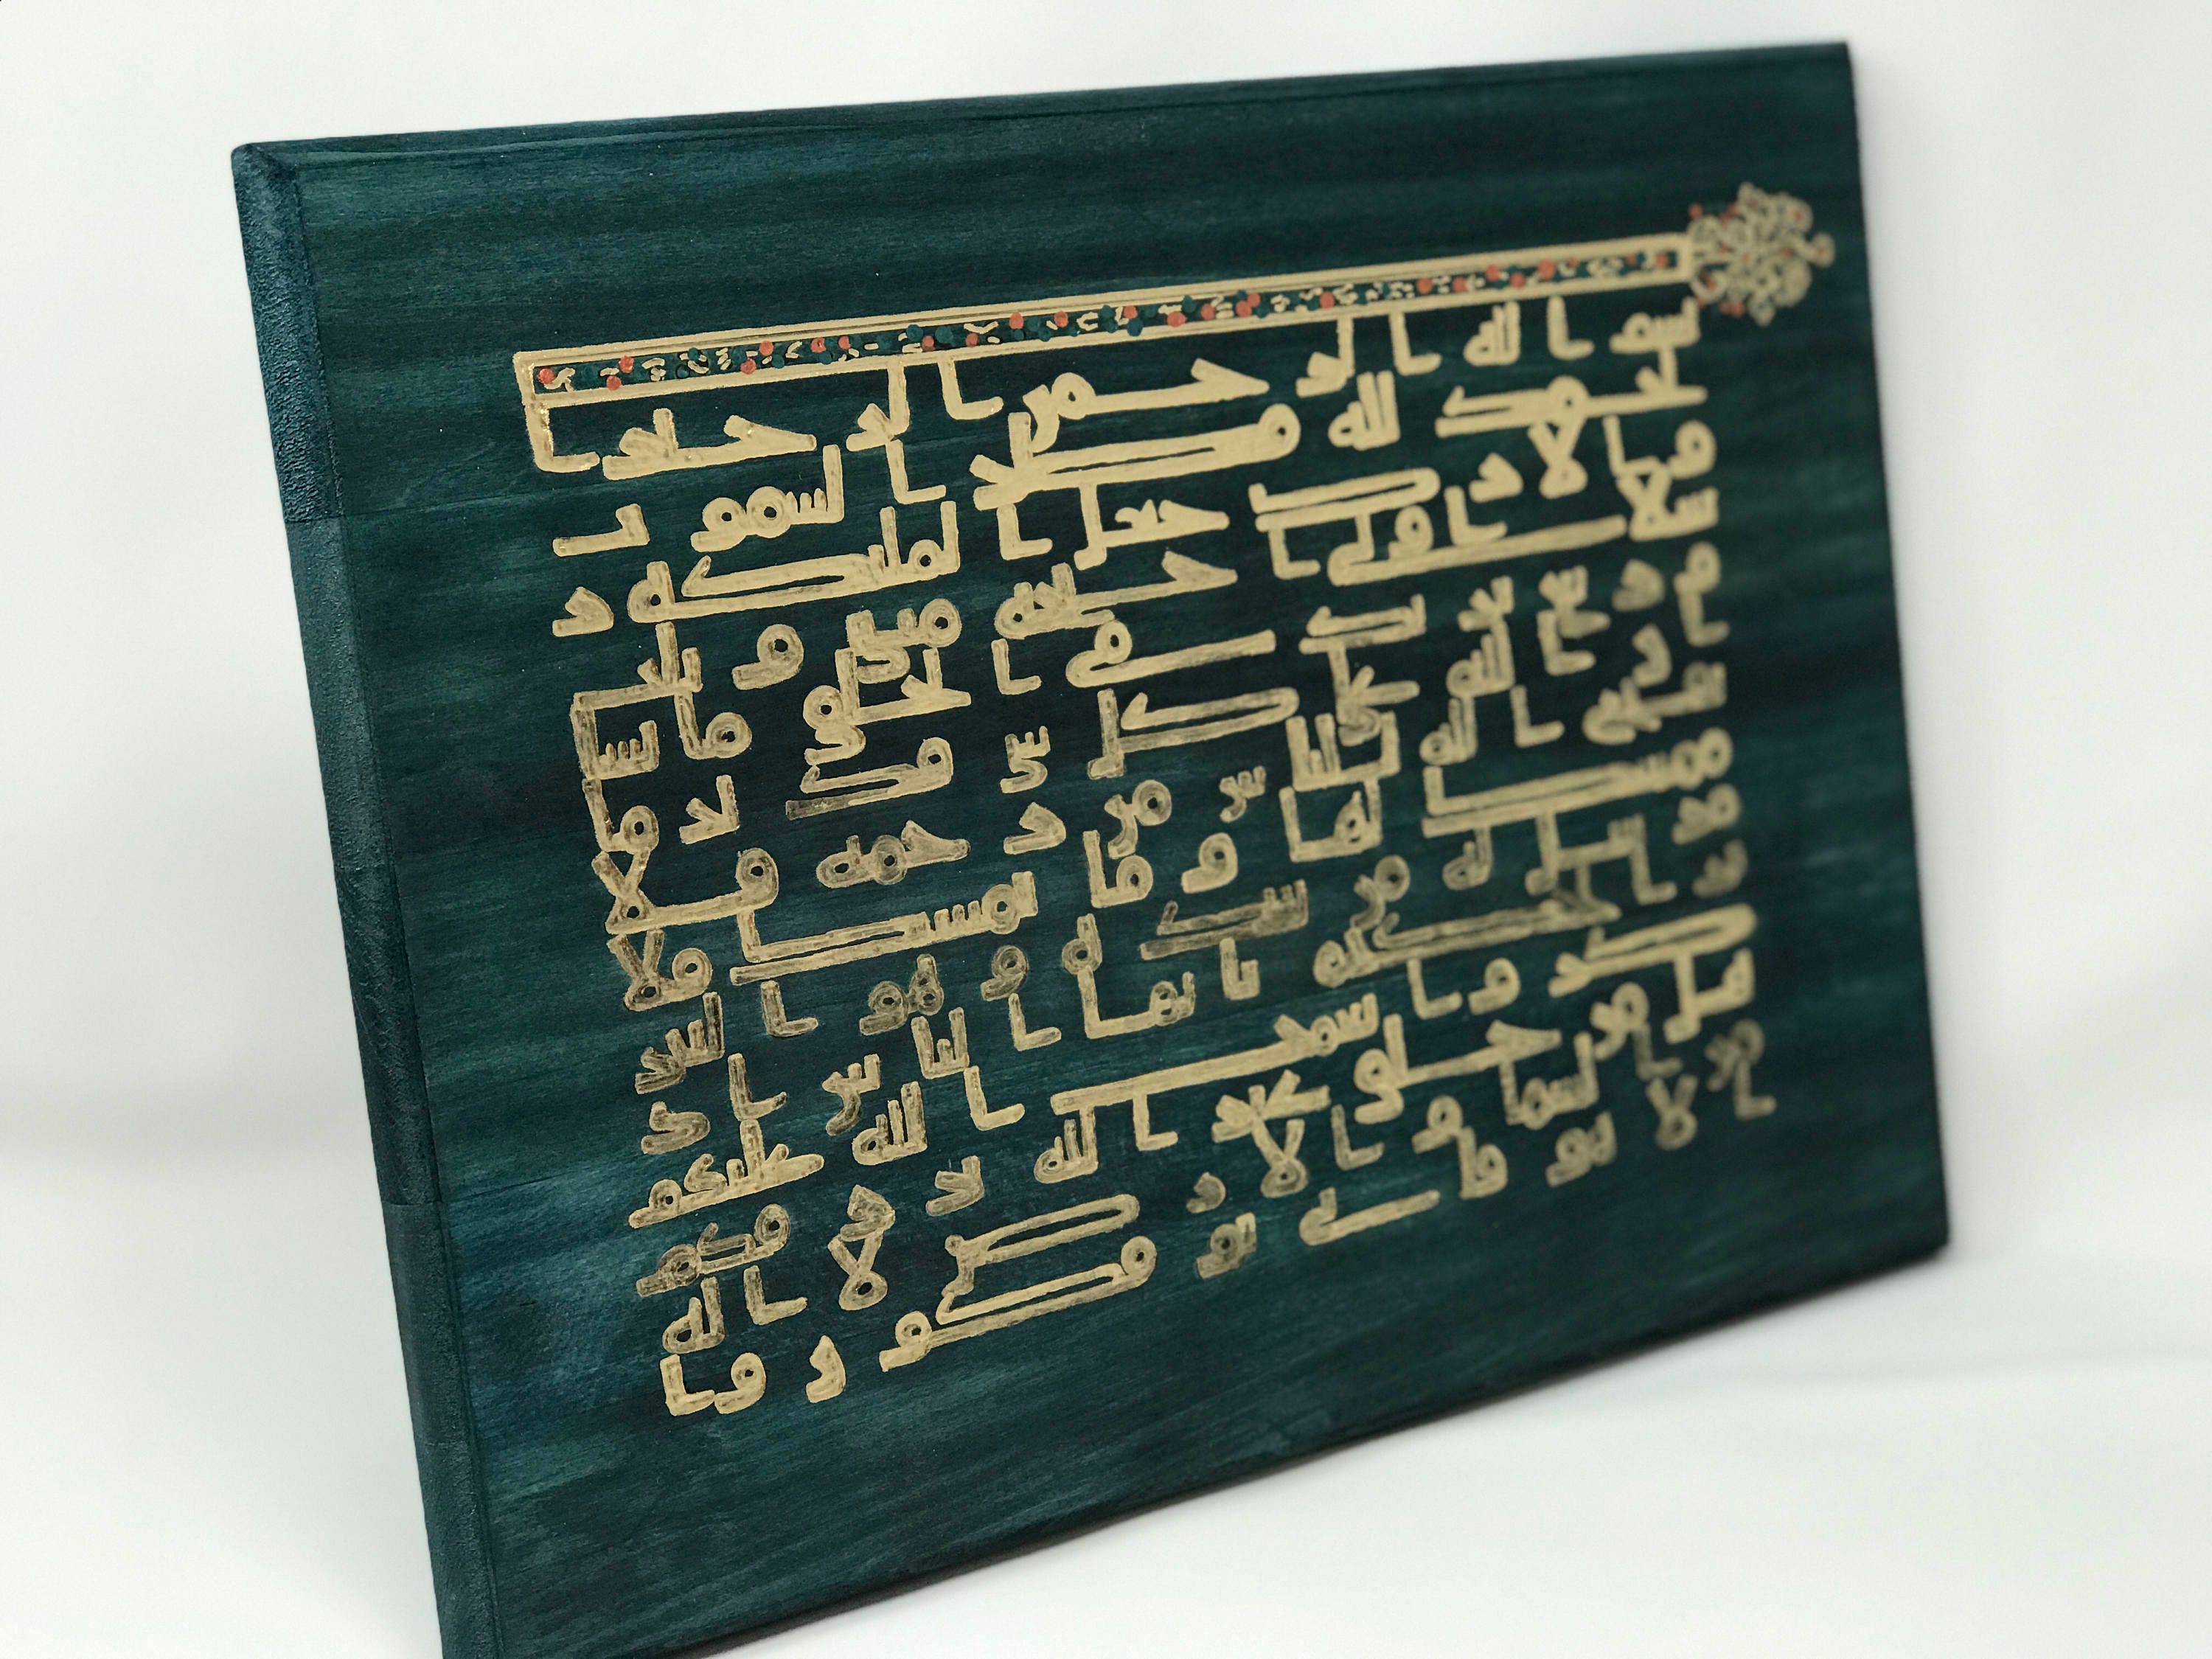 بسم الله الرحمن الرحيم ا
لحمد لله فطر السموت
و الارض جعل الملئكة ر
سلا اولى اجنحة مثنى و ثلث
و ربع يزيد فى الخلق ما يشا
ان الله على كل شى قدير ما
يفتح الله للناس من رحمة فلا
ممسك لها و ما يمسك فلا
مرسل له من بعده و هو العز
يز الحكيم يايها الناس اذ
كروا نعمت الله عليكم
هل من خلق غير الله يرزقكم
من السما و الارض لا اله
الا هو فانى تؤفكون و ا